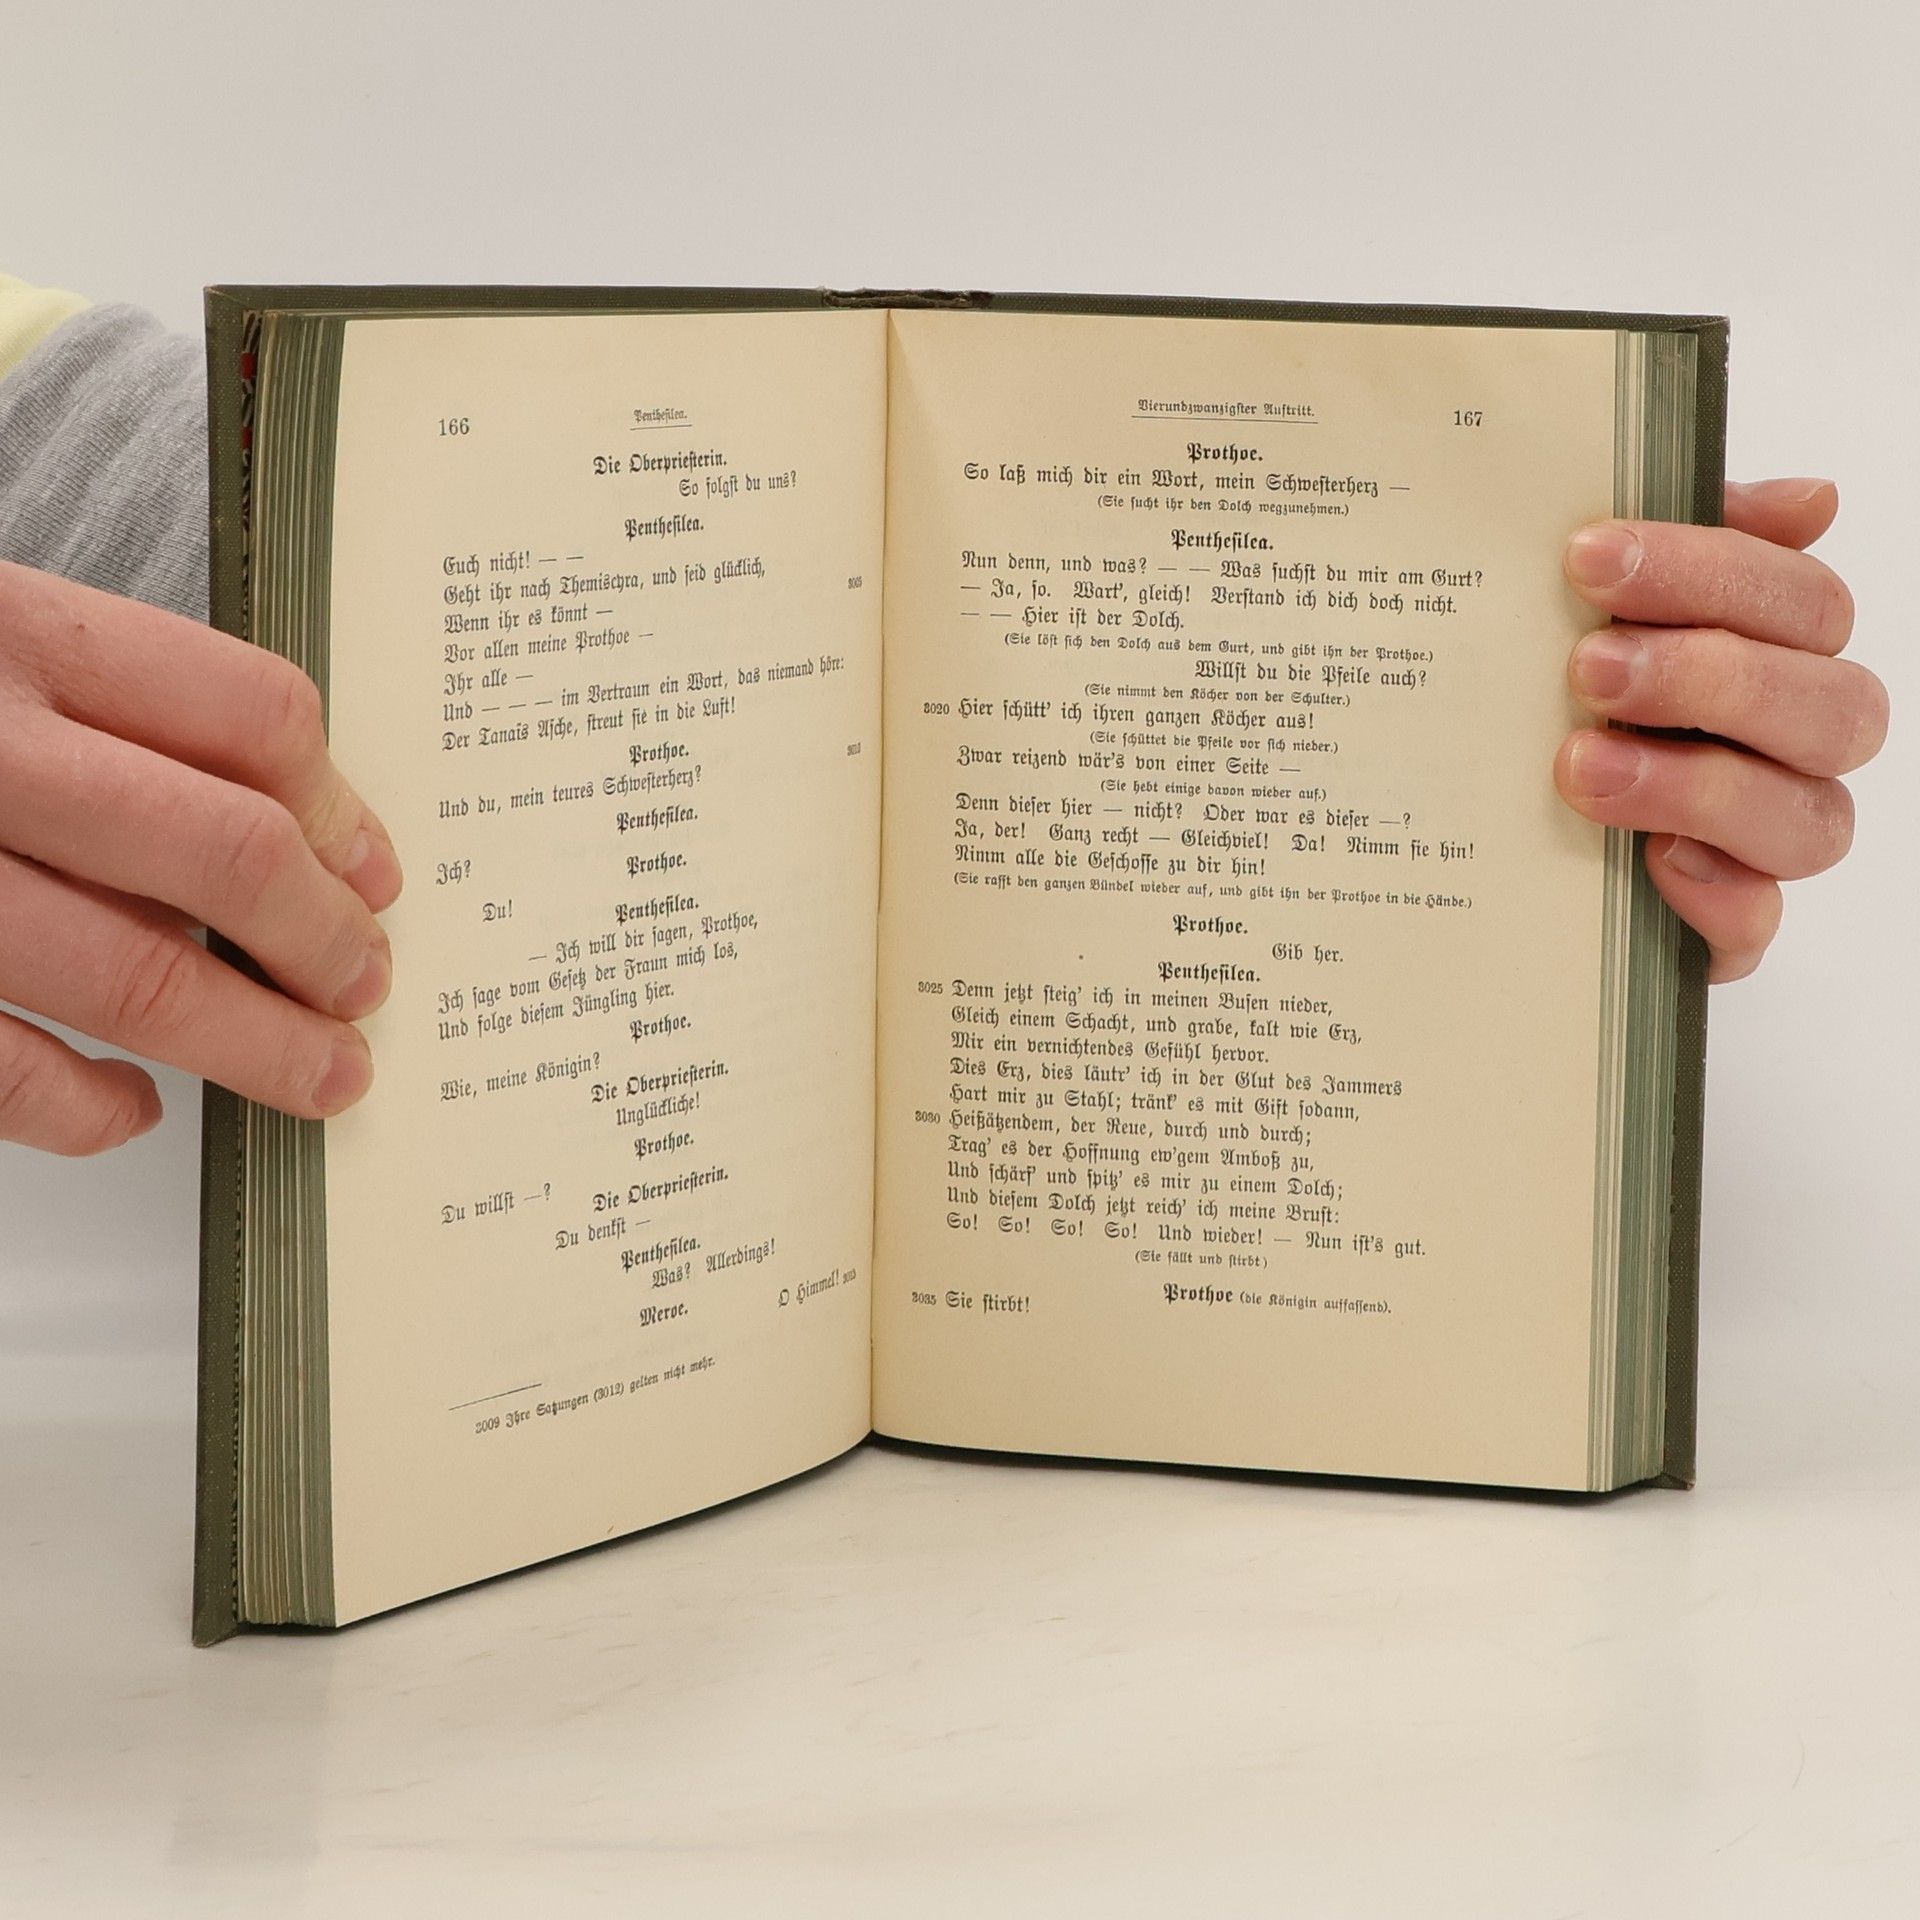 166
Penthesilea.
Die Oberpriesterin.
So folgst du uns?
Penthesilea.
Euch nicht! — —
Geht ihr nach Themiscyra, und seid glücklich,
3005
Wenn ihr es könnt —
Vor allen meine Prothoe —
Ihr alle —
Und — — — im Vertraun ein Wort, das niemand höre:
Der Tanaïs Asche, streut sie in die Luft!
Prothoe.
3010
Und du, mein teures Schwesterherz?
Penthesilea.
Ich?
Prothoe.
Du!
Penthesilea.
— Ich will dir sagen, Prothoe,
Ich sage vom Gesetz der Fraun mich los,
Und folge diesem Jüngling hier.
Prothoe.
Wie, meine Königin?
Die Oberpriesterin.
Unglückliche!
Prothoe.
Du willst —?
Die Oberpriesterin.
Du denkst —
Penthesilea.
Was? Allerdings!
Meroe.
O Himmel! 3015
3009 Ihre Satzungen (3012) gelten nicht mehr.
Vierundzwanzigster Auftritt.
167
Prothoe.
So laß mich dir ein Wort, mein Schwesterherz —
(Sie sucht ihr den Dolch wegzunehmen.)
Penthesilea.
Nun denn, und was? — — Was suchst du mir am Gurt?
— Ja, so. Wart', gleich! Verstand ich dich doch nicht.
— — Hier ist der Dolch.
(Sie löst sich den Dolch aus dem Gurt, und gibt ihn der Prothoe.)
Willst du die Pfeile auch?
(Sie nimmt den Köcher von der Schulter.)
3020 Hier schütt' ich ihren ganzen Köcher aus!
(Sie schüttet die Pfeile vor sich nieder.)
Zwar reizend wär's von einer Seite —
(Sie hebt einige davon wieder auf.)
Denn dieser hier — nicht? Oder war es dieser —?
Ja, der! Ganz recht — Gleichviel! Da! Nimm sie hin!
Nimm alle die Geschosse zu dir hin!
(Sie rafft den ganzen Bündel wieder auf, und gibt ihn der Prothoe in die Hände.)
Prothoe.
Gib her.
Penthesilea.
3025 Denn jetzt steig' ich in meinen Busen nieder,
Gleich einem Schacht, und grabe, kalt wie Erz,
Mir ein vernichtendes Gefühl hervor.
Dies Erz, dies läutr' ich in der Glut des Jammers
Hart mir zu Stahl; tränk' es mit Gift sodann,
3030 Heißätzendem, der Reue, durch und durch;
Trag' es der Hoffnung ew'gem Amboß zu,
Und schärf' und spitz' es mir zu einem Dolch;
Und diesem Dolch jetzt reich' ich meine Brust:
So! So! So! So! Und wieder! — Nun ist's gut.
(Sie fällt und stirbt)
Prothoe (die Königin auffassend).
3035 Sie stirbt!